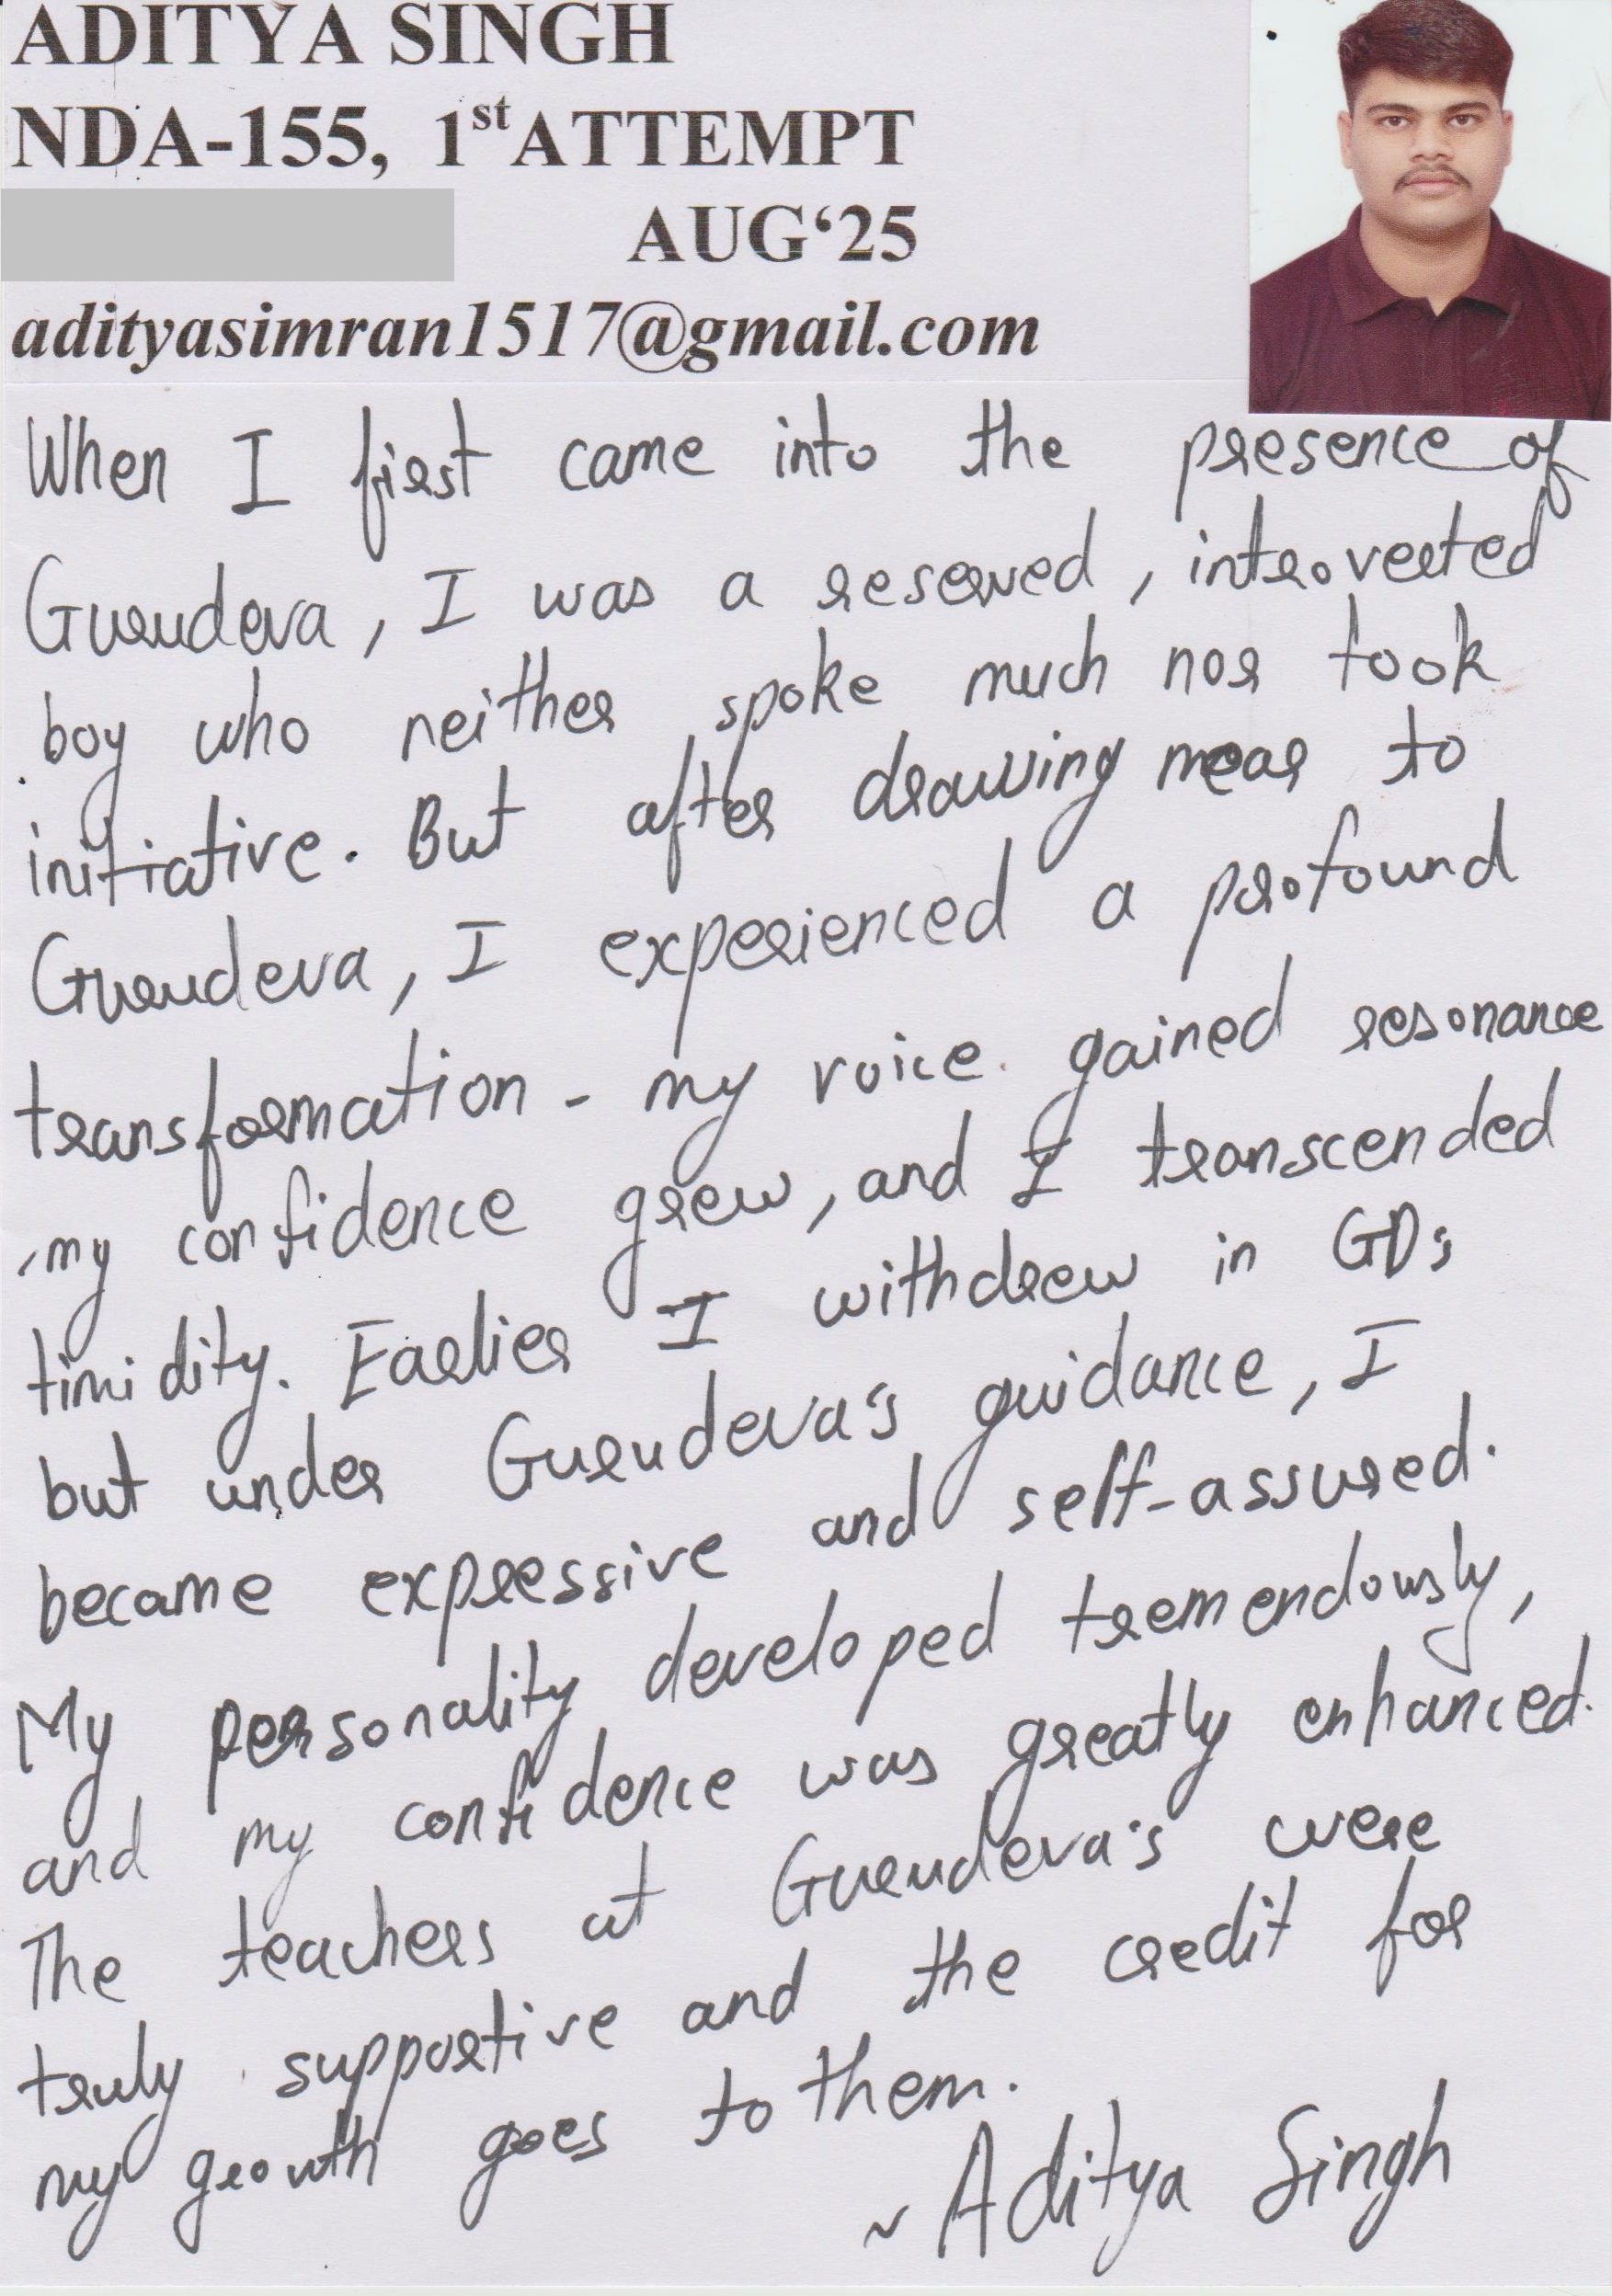 ADITYA SINGH
NDA-155, 1st ATTEMPT
AUG‘25
adityasimran1517@gmail.com
When I first came into the presence of
Gurudeva, I was a reserved, introverted
boy who neither spoke much nor took
initiative. But after drawing near to
Gurudeva, I experienced a profound
transformation - my voice gained resonance
my confidence grew, and I transcended
timidity. Earlier I withdrew in GDs
but under Gurudeva's guidance, I
became expressive and self-assured.
My personality developed tremendously,
and my confidence was greatly enhanced.
The teachers at Gurudeva's were
truly supportive and the credit for
my growth goes to them.
~ Aditya Singh